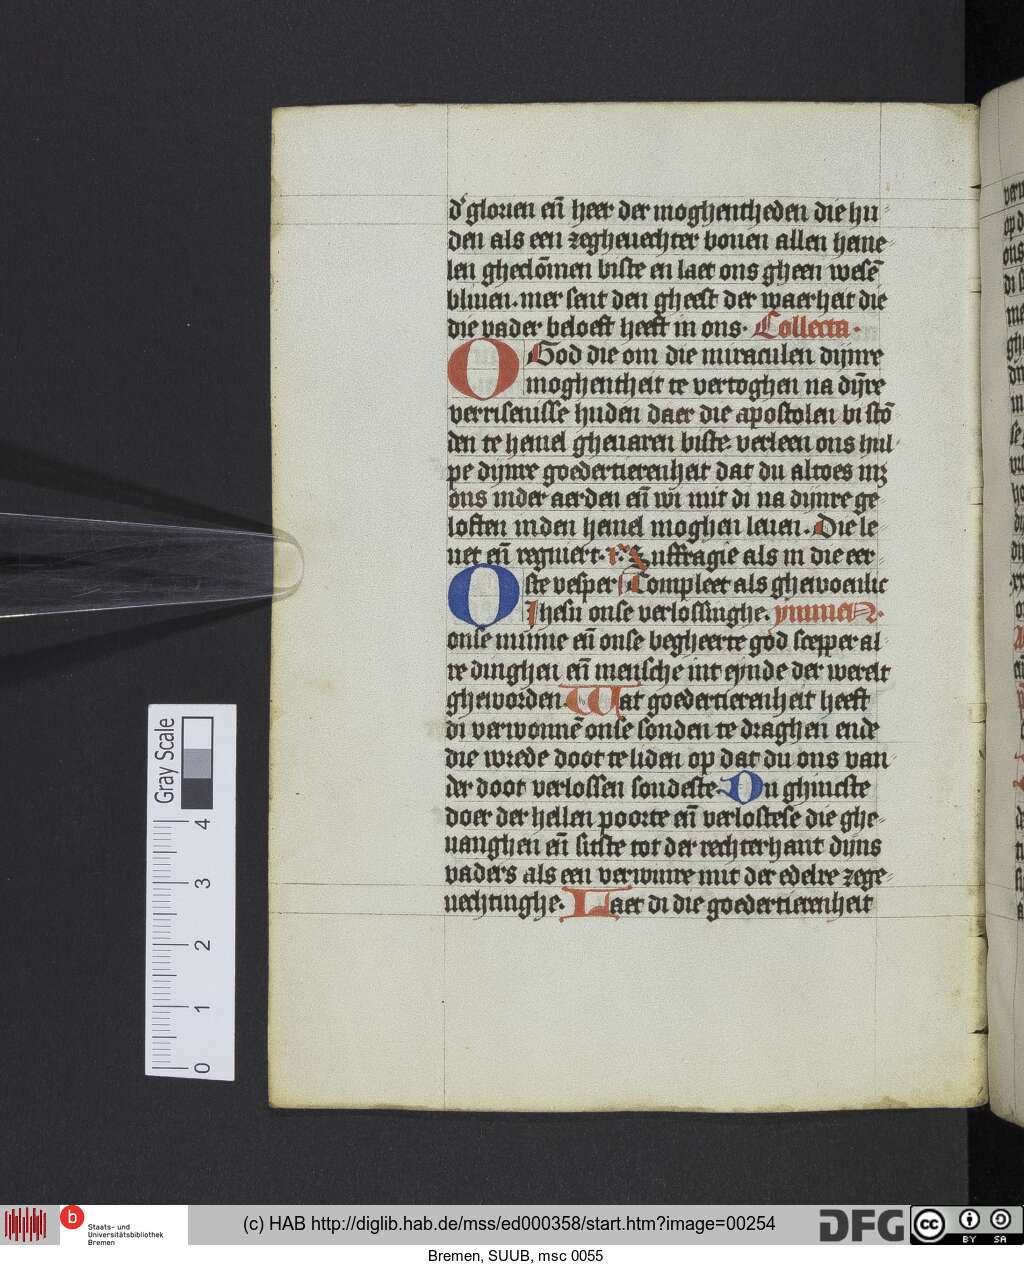 d' glorien en̄ heer der moghentheden die hu
den als een zegheuechter bouen allen heme
len gheclōmen biste en laet ons gheen wesē
bliuen. mer sent den gheest der waerheit die
die vader beloeft heeft in ons. Collecta.
O God die om die miraculen dijnre
moghentheit te vertoghen na dijn̄re
verrisenisse huden daer die apostolen bi stō
den te hemel gheuaren biste verleen ons hul
pe dijnre goedertierenheit dat du altoes mz
ons inder aerden en̄ wi mit di na dijnre ge
loften inden hemel moghen leuen. Die le
uet en̄ regniert. r. Suffragie als in die eer
ste vesper Compleet als ghewoenlic
O Ihesu onse verlossinghe. ymmen.
onse minne en̄ onse begheerte god scepper al
re dinghen en̄ mensche int eynde der werelt
gheworden. Wat goedertierenheit heeft
di verwonnē onse sonden te draghen ende
die wrede doot te liden op dat du ons van
der doot verlossen soudeste. Du ghincste
doer der hellen poorte en̄ verlostese die ghe
uanghen en̄ sitste tot der rechterhant dijns
vaders als een verwinre mit der edelre zege
uechtinghe. Laet di die goedertierenheit
Gray Scale
4
3
2
1
0
b
Staats- und
Universitätsbibliothek
Bremen
(c) HAB http://diglib.hab.de/mss/ed000358/start.htm?image=00254
DFG
cc
BY SA
Bremen, SUUB, msc 0055